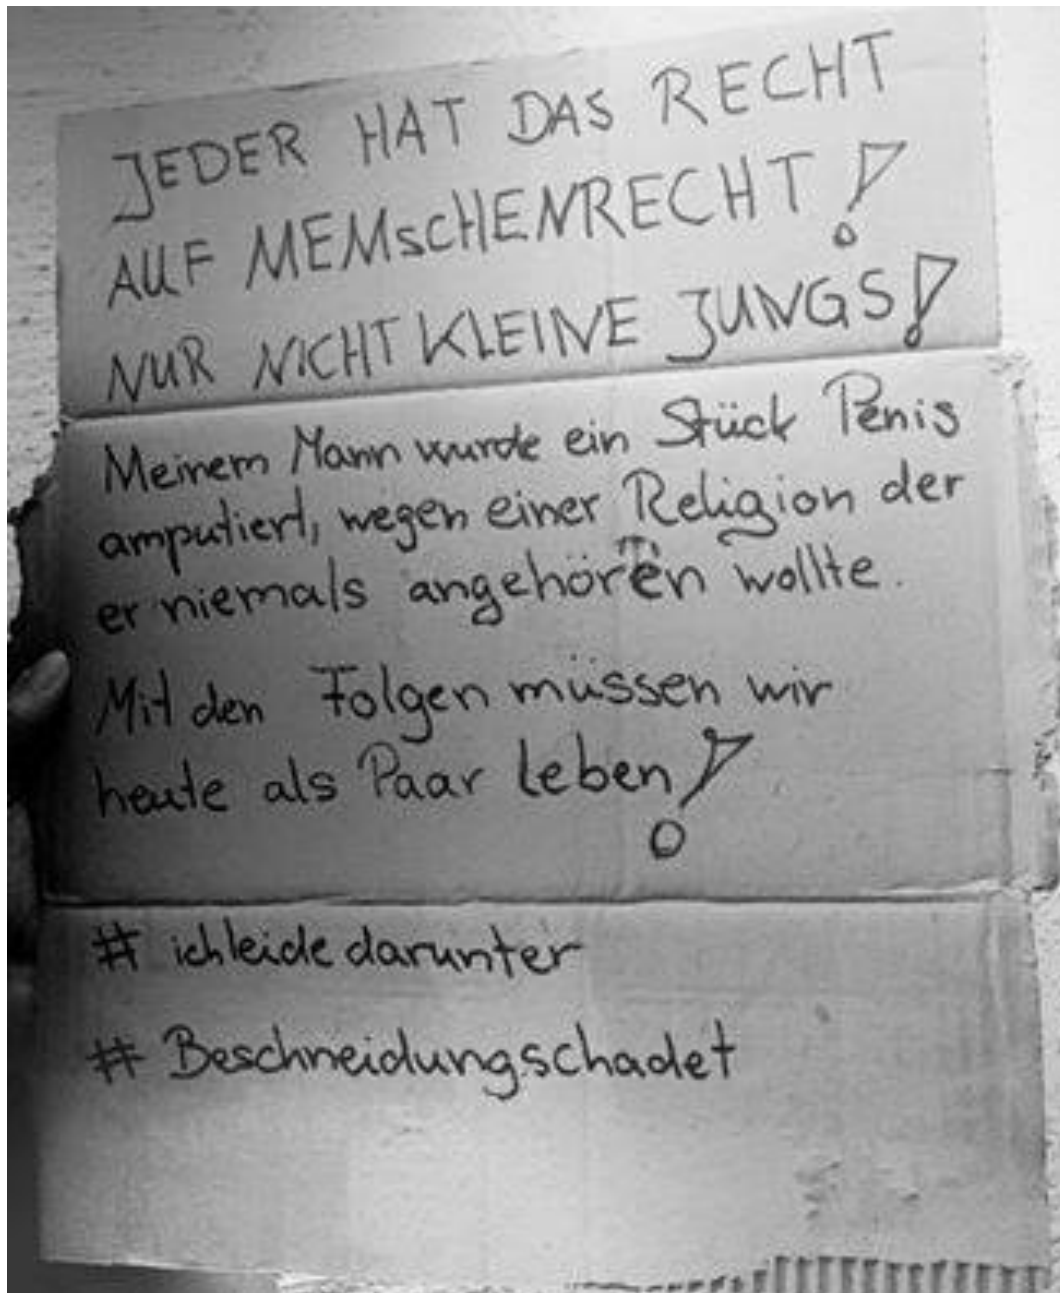 JEDER HAT DAS RECHT
AUF MEMSCHENRECHT!
NUR NICHT KLEINE JUNGS!
Meinem Mann wurde ein Stück Penis
amputiert, wegen einer Religion der
er niemals angehören wollte.
Mit den Folgen müssen wir
heute als Paar leben!
# ichleidedarunter
# Beschneidungschadet